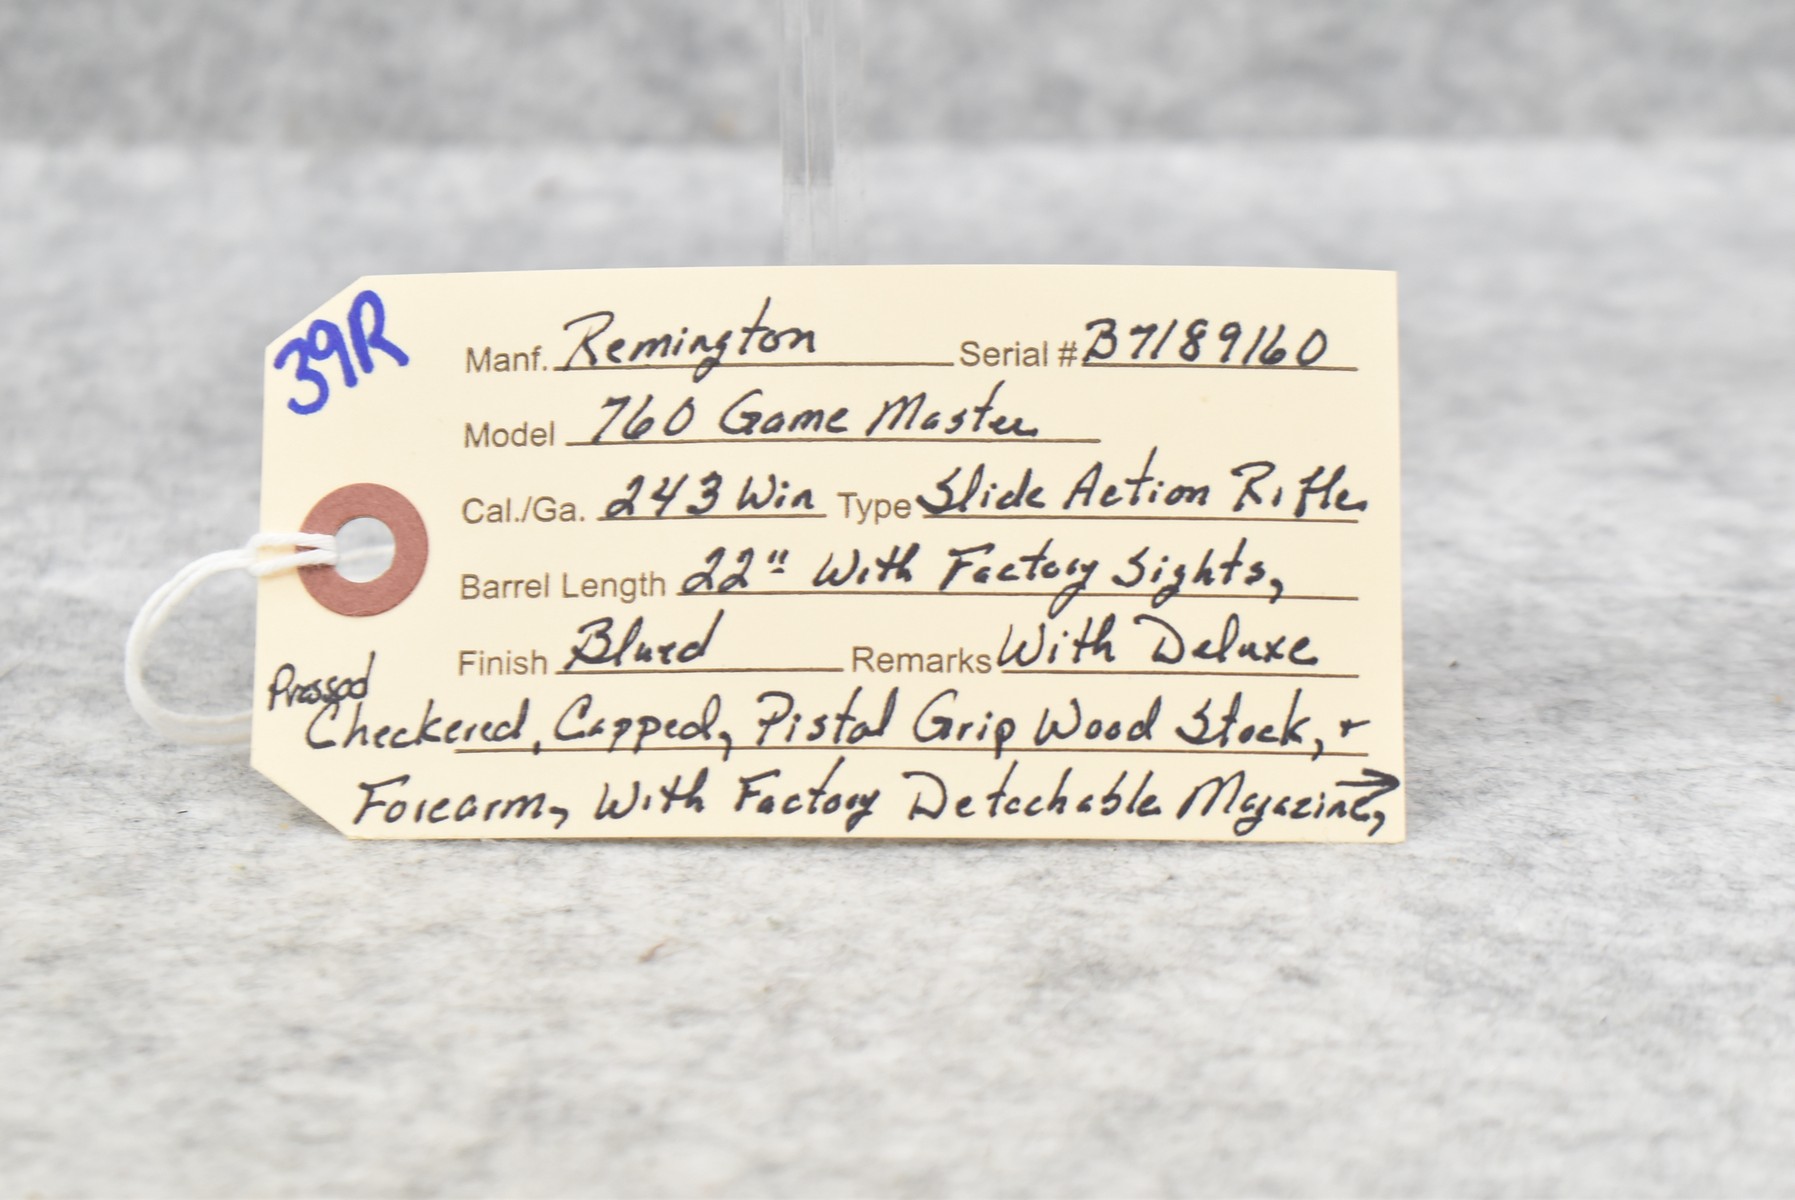 39R
Manf. Remington Serial # B7189160
Model 760 Game Master
Cal./Ga. 243 Win Type Slide Action Rifle
Barrel Length 22" With Factory Sights,
Finish Blued Remarks With Deluxe
Pressed
Checkered, Capped, Pistol Grip Wood Stock, +
Forearm, With Factory Detachable Magazine, →